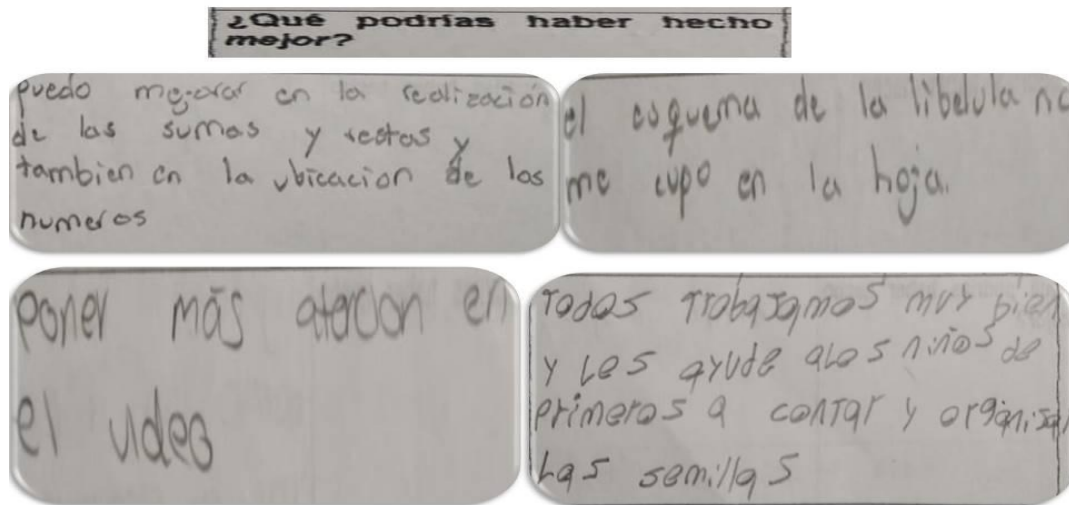 ¿Qué podrías haber hecho
mejor?
puedo mejorar en la realización
de las sumas y restas y
tambien en la ubicacion de los
numeros
el esquema de la libelula no
me cupo en la hoja.
poner más atencion en
el video
Todos Trobajamos muy bien
y les ayude alos niños de
primeros a contar y organisar
las semillas